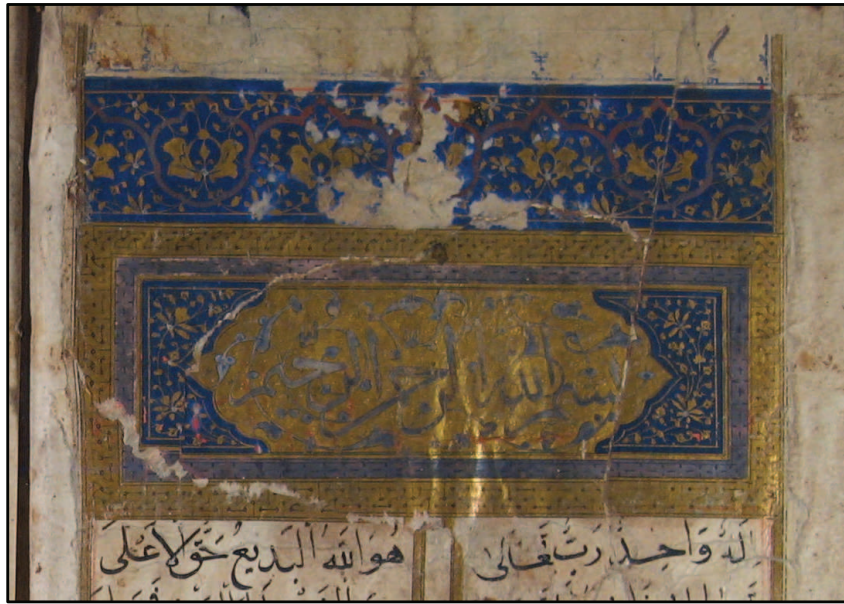 بسم الله الرحمن الرحيم
اله واحد رب تعالى هو الله البديع حق الاعلى